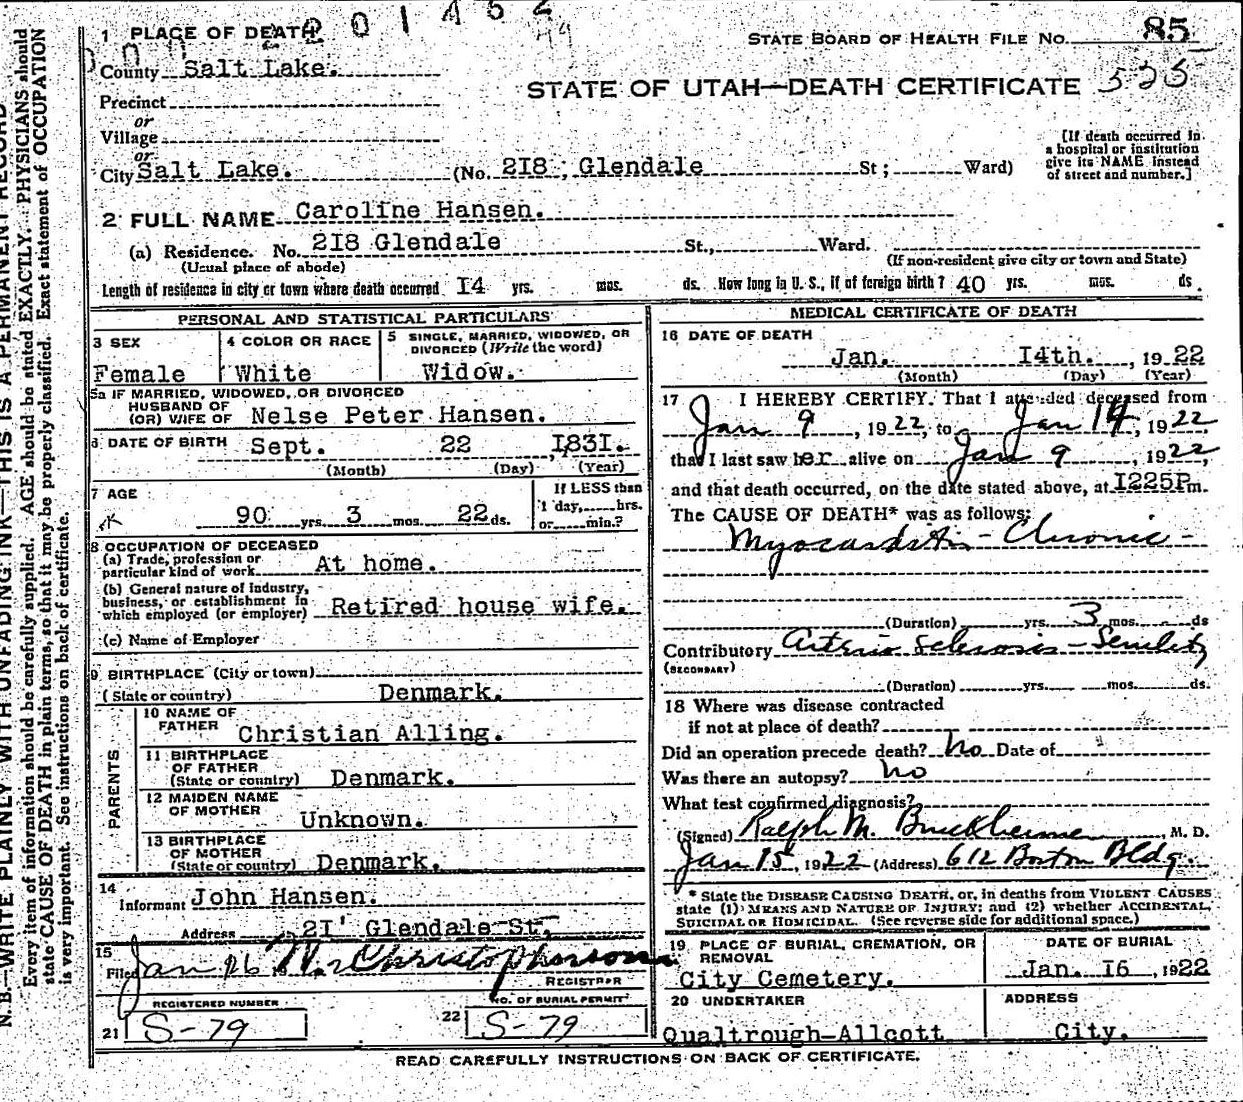 2201452
1 PLACE OF DEATH
STATE BOARD OF HEALTH FILE No. 85
County Salt Lake.
STATE OF UTAH—DEATH CERTIFICATE
Precinct
or
Village
or
City Salt Lake. (No. 2I8 ; Glendale St ; Ward)
(If death occurred in
a hospital or institution
give its NAME instead
of street and number.]
2 FULL NAME Caroline Hansen.
(a) Residence. No. 2I8 Glendale St., Ward.
(Usual place of abode) (If non-resident give city or town and State)
Length of residence in city or town where death occurred I4 yrs. mos. ds. How long in U. S., if of foreign birth? 40 yrs. mos. ds.
PERSONAL AND STATISTICAL PARTICULARS
3 SEX
Female
4 COLOR OR RACE
White
5 SINGLE, MARRIED, WIDOWED, OR
DIVORCED (Write the word)
Widow.
5a IF MARRIED, WIDOWED, OR DIVORCED
HUSBAND OF
(OR) WIFE OF Nelse Peter Hansen.
6 DATE OF BIRTH Sept. 22 , I83I.
(Month) (Day) (Year)
7 AGE
90 yrs. 3 mos. 22 ds.
If LESS than
1 day, hrs.
or min.?
8 OCCUPATION OF DECEASED
(a) Trade, profession or
particular kind of work At home.
(b) General nature of industry,
business, or establishment in
which employed (or employer) Retired house wife.
(c) Name of Employer
9 BIRTHPLACE (City or town)
(State or country) Denmark.
PARENTS
10 NAME OF
FATHER Christian Alling.
11 BIRTHPLACE
OF FATHER
(State or country) Denmark.
12 MAIDEN NAME
OF MOTHER Unknown.
13 BIRTHPLACE
OF MOTHER
(State or country) Denmark.
14
Informant John Hansen.
Address 2I' Glendale St,
15
Filed Jan 16 Christopherson
REGISTRAR
REGISTERED NUMBER
21 S-79
NO. OF BURIAL PERMIT
22 S-79
MEDICAL CERTIFICATE OF DEATH
16 DATE OF DEATH
Jan. I4th. , 1922
(Month) (Day) (Year)
17 I HEREBY CERTIFY. That I attended deceased from
Jan 9 , 1922, to Jan 14, 1922
that I last saw her alive on Jan 9 , 1922,
and that death occurred, on the date stated above, at I225P m.
The CAUSE OF DEATH* was as follows:
Myocarditis - Chronic -
(Duration) yrs. 3 mos. ds
Contributory Arterio sclerosis - Senility
(SECONDARY)
(Duration) yrs. mos. ds.
18 Where was disease contracted
if not at place of death?
Did an operation precede death? no Date of
Was there an autopsy? no
What test confirmed diagnosis?
(Signed) Ralph M. , M. D.
Jan 15, 1922 (Address) 612 Boston Bldg.
* State the DISEASE CAUSING DEATH, or, in deaths from VIOLENT CAUSES
state (1) MEANS AND NATURE OF INJURY; and (2) whether ACCIDENTAL,
SUICIDAL OR HOMICIDAL. (See reverse side for additional space.)
19 PLACE OF BURIAL, CREMATION, OR
REMOVAL
City Cemetery.
DATE OF BURIAL
Jan. I6 , 1922
20 UNDERTAKER
Qualtrough-Allcott
ADDRESS
City.
READ CAREFULLY INSTRUCTIONS ON BACK OF CERTIFICATE.
N. B.—WRITE PLAINLY WITH UNFADING INK—THIS IS A PERMANENT RECORD
Every item of information should be carefully supplied. AGE should be stated EXACTLY. PHYSICIANS should
state CAUSE OF DEATH in plain terms, so that it may be properly classified. Exact statement of OCCUPATION
is very important. See instructions on back of certificate.